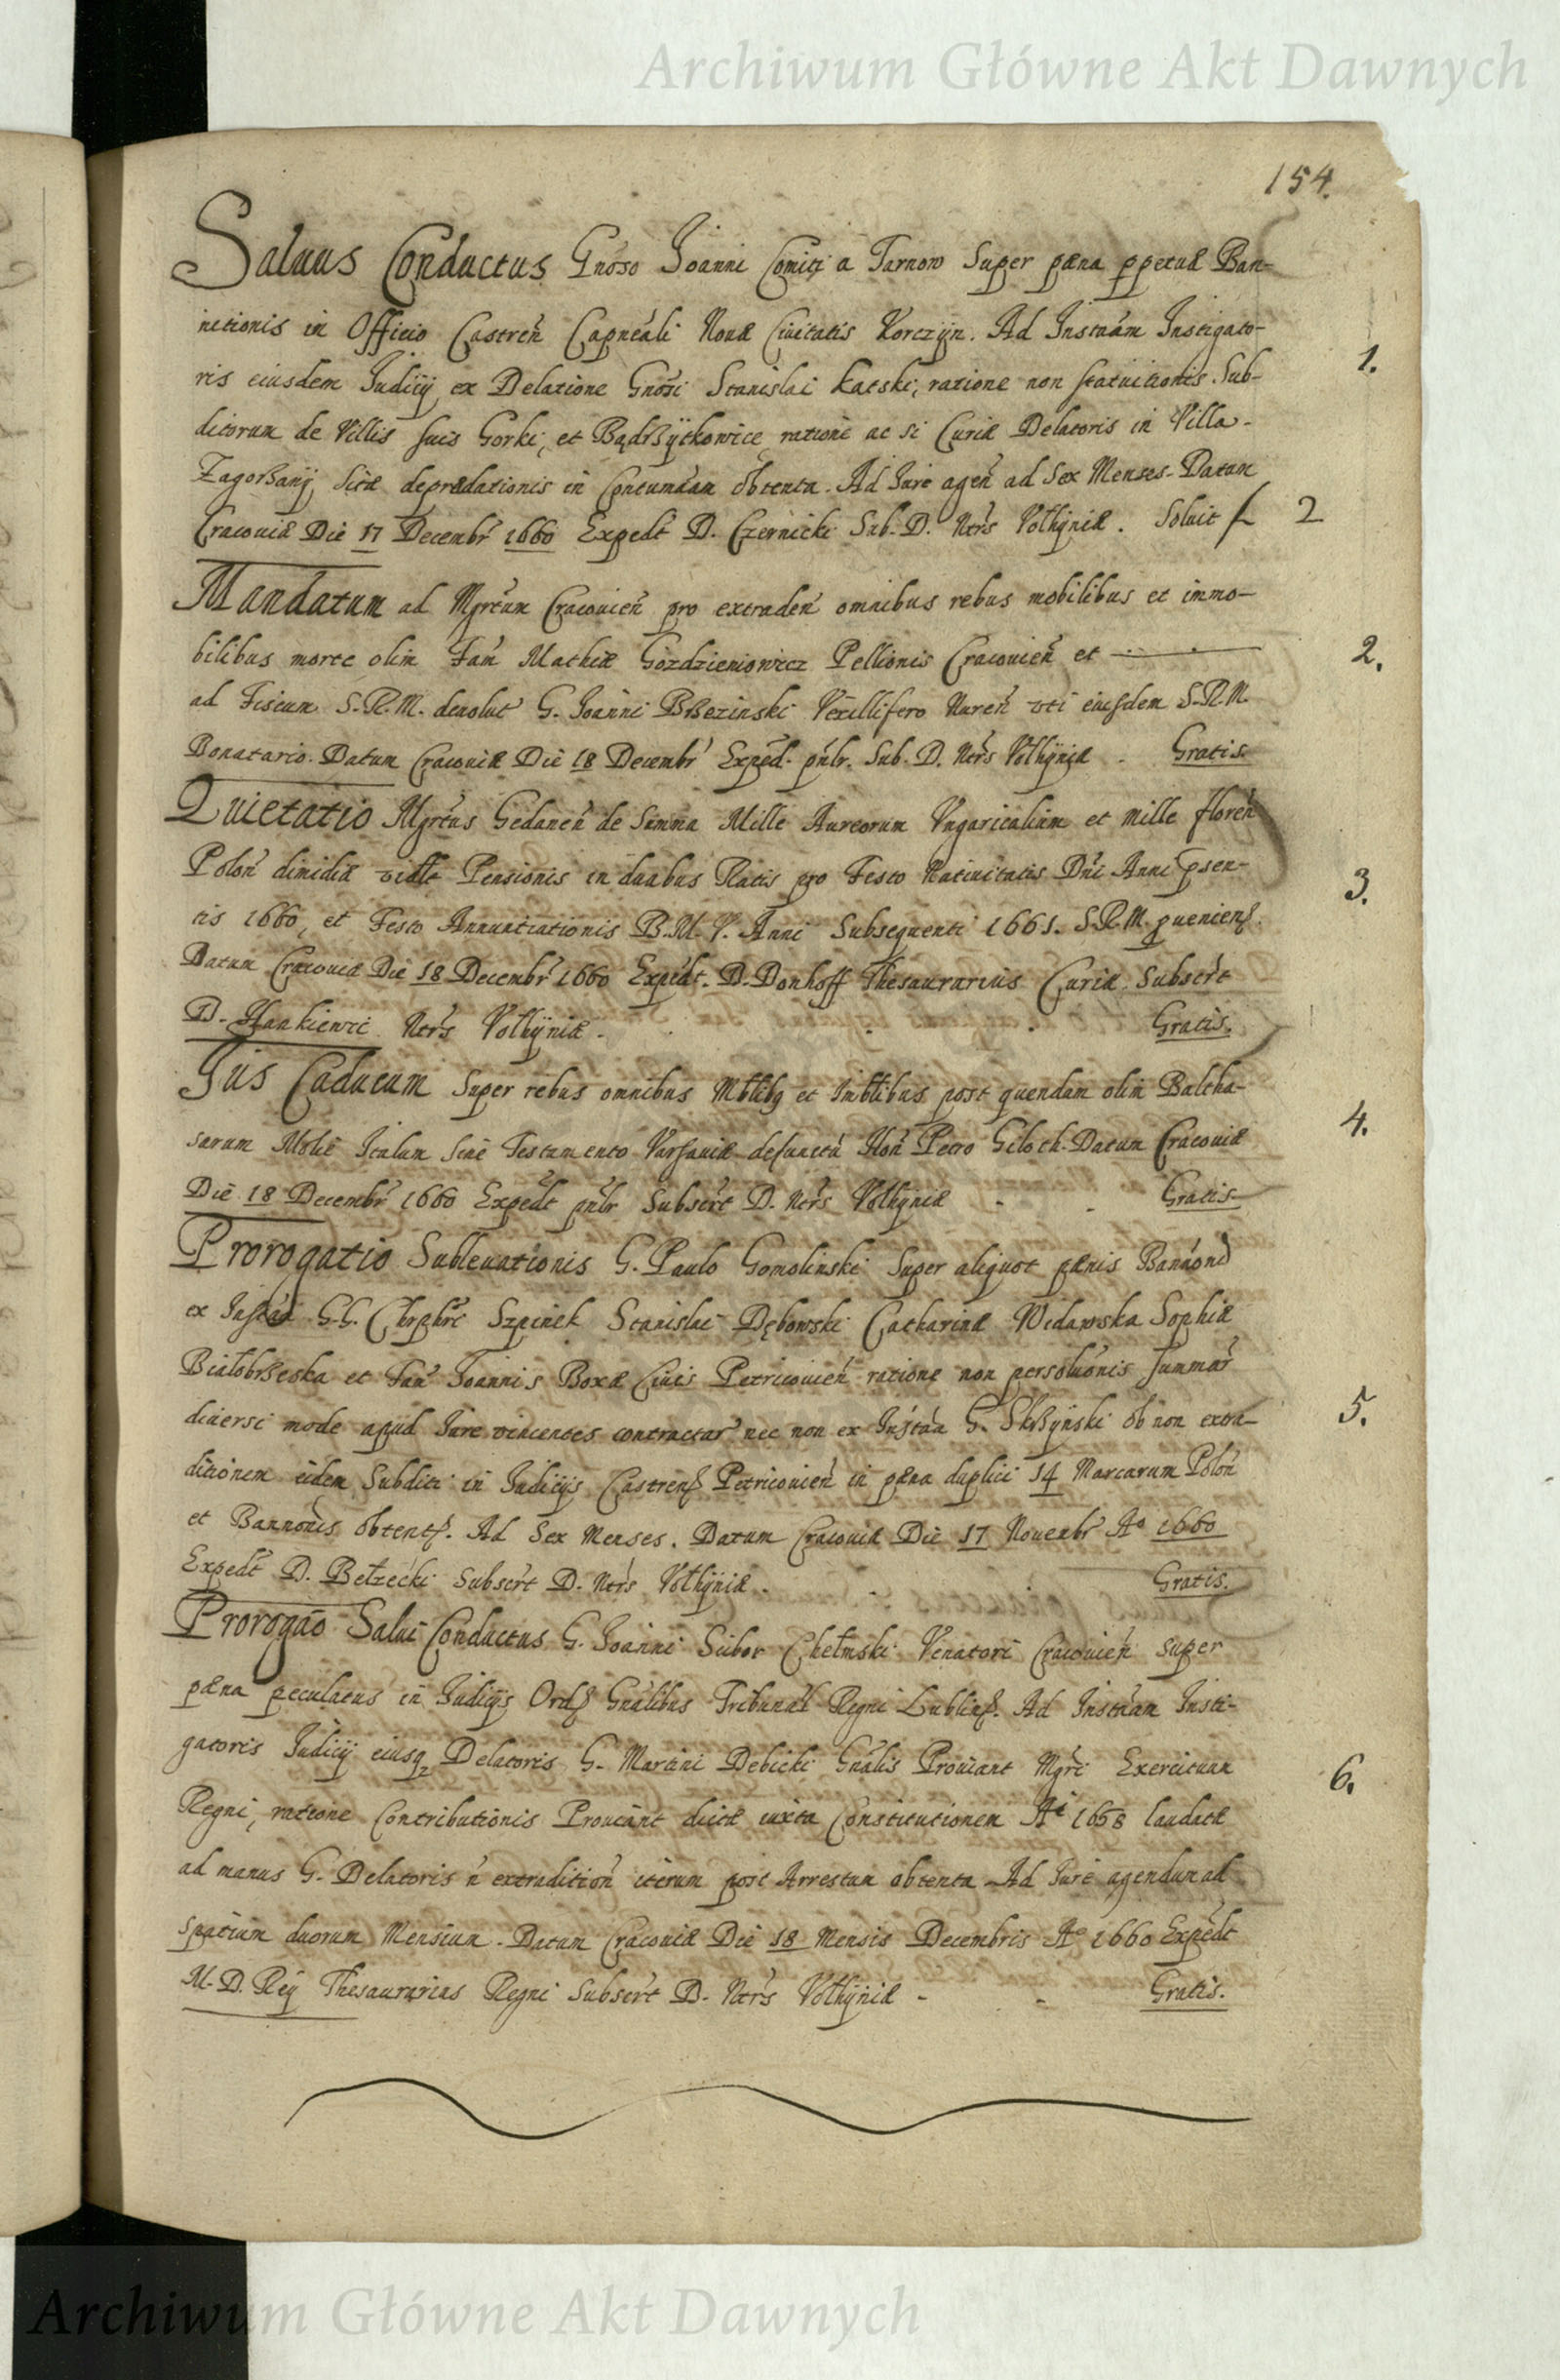 Archiwum Główne Akt Dawnych
154.
Saluus Conductus Gnoso Joanni Comiti a Tarnow Super pæna ppetuæ Ban-
nitionis in Officio Castreń Capneali Nouæ Ciuitatis Korczyn. Ad Instnam Instigato-
ris eiusdem Judicij ex Delatione Gnosi Stanislai Katski, ratione non statuitionis Sub-
ditorum de Villis suis Gorki, et Bądrßytkowice ratione ac si Curiæ Delatoris in Villa
Zagorßany Sitæ deprædationis in Contumaam obtenta. Ad Jure ageń ad Sex Menses. Datum
Cracouiæ Die 17 Decembr 1660 Expedt D. Czernicki Sub. D. Nrs Volhyniæ. Soluit f 2
1.
Mandatum ad Mgrtum Cracouień pro extradeń omnibus rebus mobilibus et immo-
bilibus morte olim Fań Mathiæ Gozdzieniowicz Pellionis Cracouień et
ad Fiscum S.R.M. deuolut G. Joanni Brßezinski Vexillifero Nureń uti eiusdem S.R.M.
Donatario. Datum Cracouiæ Die 18 Decembr Exped. pnlr. Sub. D. Nrs Volhyniæ. Gratis.
2.
Quietatio Mgrtus Gedaneń de Summa Mille Aureorum Ungaricalium et mille floreń
Poloń dimidiæ Pensionis in duabus Ratis pro Festo Natiuitatis Dni Anni psen-
tis 1660, et Festo Annuntiationis B.M.V. Anni Subsequenti 1661. S.R.M. pueniens.
Datum Cracouiæ Die 18 Decembr 1660 Expedt. D. Donhoff Thesaurarius Curiæ. Subscrt
D. Hankiewic Nrs Volhyniæ. Gratis.
3.
Jus Caducum Super rebus omnibus Mblibq et Imblibus post quendam olim Baltha-
sarum Italum Sine Testamento Varsauiæ defunctu Hoń Petro Giloch. Datum Cracouiæ
Die 18 Decembr 1660 Expedt pnlr Subscrt D. Nrs Volhyniæ Gratis
4.
Prorogatio Subleuationis G. Paulo Gomolinski Super aliquot pænis Bannoni
ex Instaa G.G. Chrphri Szpinek Stanislai Dębowski Catharinæ Widawska Sophiæ
Białobrßeska et Fań Joannis Boxæ Ciuis Petricouień ratione non persoluonis summar
diuersi mode apud Jure uincentes contractar nec non ex Instaa G. Skßyński ob non extra-
ditionem eidem Subditi in Judicijs Castrens Petricouień in pæna duplici 14 Marcarum Poloń
et Bannonis obtents. Ad Sex Menses. Datum Cracouiæ Die 17 Nouembr Ao 1660
Expedt D. Bełzecki Subscrt D. Nrs Volhyniæ. Gratis.
5.
Prorogao Salui Conductus G. Joanni Scibor Chełmski Venatori Cracouień super
pæna peculatus in Judicijs Ords Gnalibus Tribunal Regni Lublins. Ad Instnam Insti-
gatoris Judicij eiusq Delatoris G. Martini Debicki Gnalis Prouiant Mgri Exercituum
Regni, ratione Contributionis Prouiant dictæ iuxta Constitutionem Ai 1658 laudatæ
ad manus G. Delatoris ń extraditioń iterum post Arrestum obtenta. Ad Jure agendum ad
spatium duorum Mensium. Datum Cracouiæ Die 18 Mensis Decembris Ao 1660 Expedt
M. D. Rey Thesaurarius Regni Subscrt D. Nrs Volhyniæ Gratis.
6.
Archiwum Główne Akt Dawnych